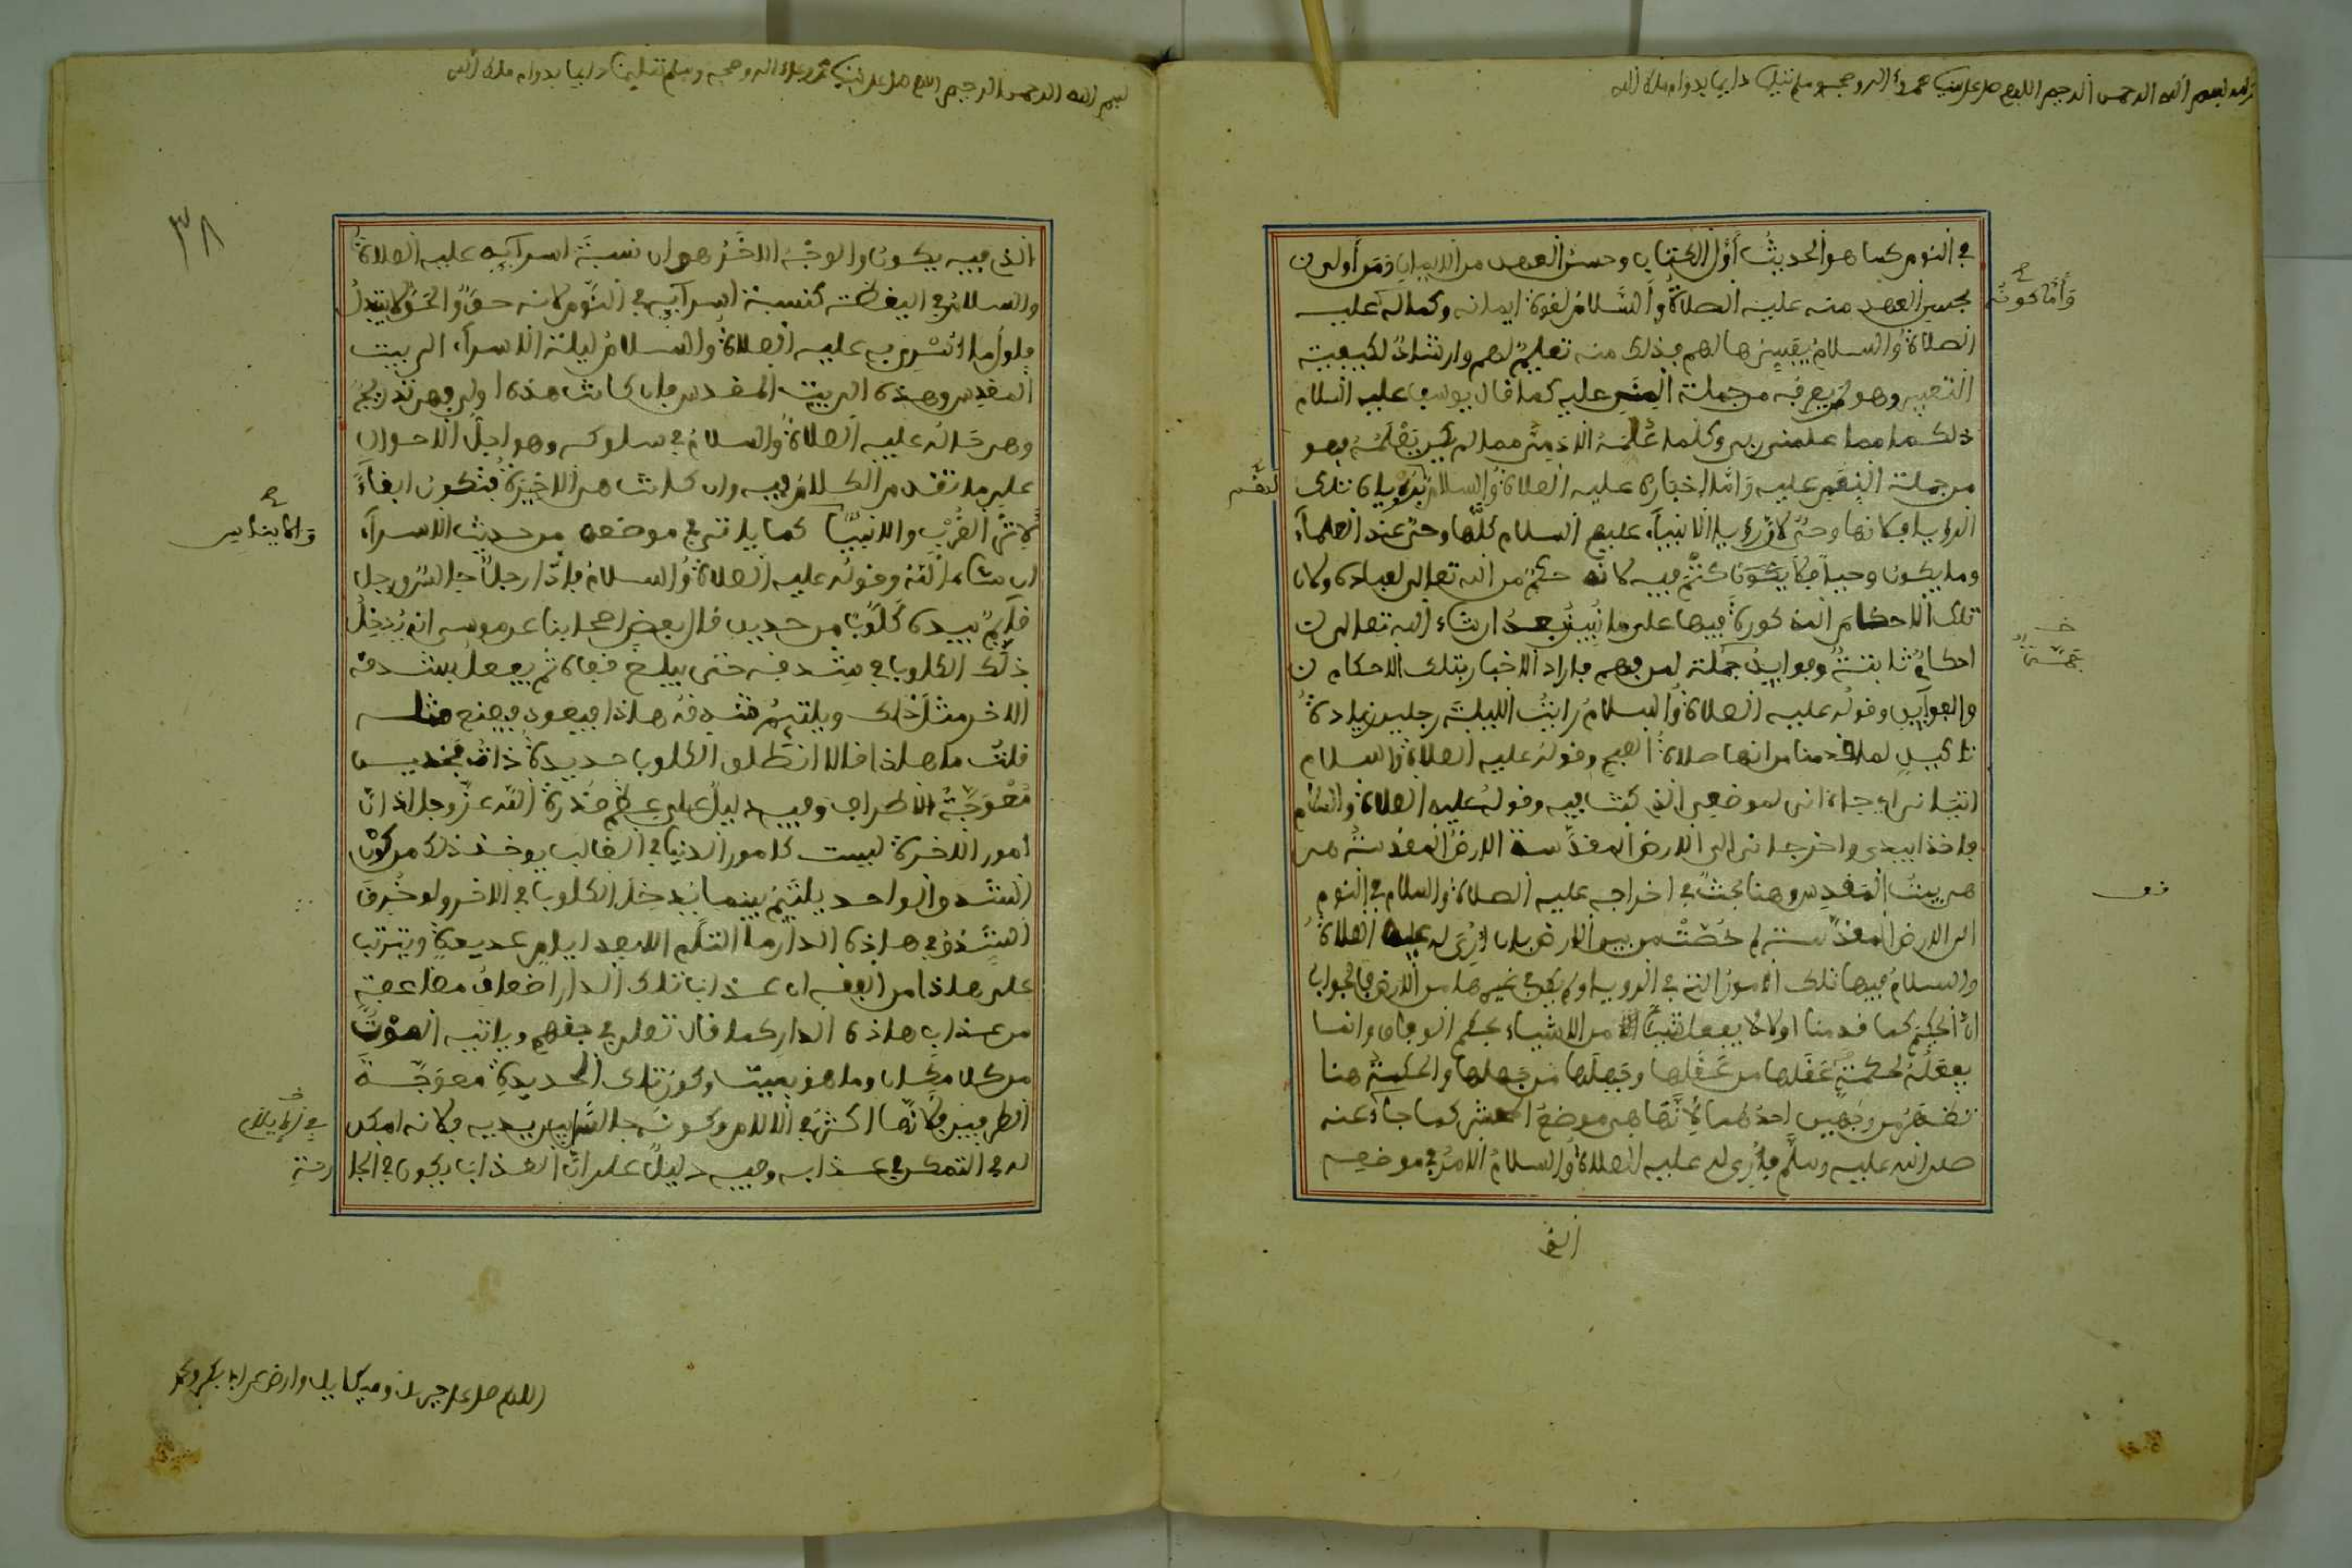 بسم الله الرحمن الرحيم اللهم صل على نبينا محمد وءاله وصحبه وسلم تسليما دايما بدوام ملك الله
في النوم كما هو الحديث أول الكتاب وحسن العهد من الايمان ومن أولى
بحسن العهد منه عليه الصلاة والسلام لقوة ايمانه وكماله عليه
الصلاة والسلام يقسيرها لهم بذلك منه تعليم لهم وارشاد لكيفية
التعبير وهو من جملة المنن عليه كما قال يوسف عليه السلام
ذلكما مما علمني ربي وكلما علمه الادمي مما لم يكن يعلمه فهو
من جملة النعم عليه وأما اخباره عليه الصلاة والسلام بتلك
الرؤيا فلانها وحي لان رؤيا الانبياء عليهم السلام كلها وحي عند العلماء
وما يكون وحيا فلا يكون كتم فيه لانه حكم من الله تعالى لعباده ولان
تلك الاحكام المذكورة فيها على ما نبينه بعد ان شاء الله تعالى
احكام ثابتة وفوايد جملة لمن فهم فاراد الاخبار بتلك الاحكام
والفوايد وقوله عليه الصلاة والسلام رايت الليلة رجلين زيادة
تاكيد لما قدمنا من انها صلاة الصبح وقوله عليه الصلاة والسلام
اتياني اي جاءاني لموضعي الذي كنت فيه وقوله عليه الصلاة والسلام
فاخذا بيدي واخرجاني الى الارض المقدسة الارض المقدسة هي
هي بيت المقدس وهنا بحث في اخراجه عليه الصلاة والسلام في النوم
الى الارض المقدسة لم خصت من بين الارض بان اري له عليه الصلاة
والسلام فيها تلك الامور التي في الرويا ولم يكن في غيرها من الارض فالجواب
ان الحكيم كما قدمنا اولا لا يفعل شيئا من الاشياء بحكم الوفاق وانما
يفعله لحكمة عقلها من عقلها وجهلها من جهلها والحكمة هنا
تظهر من وجهين احدهما لانها هي موضع المحشر كما جاء عنه
صلى الله عليه وسلم فاري له عليه الصلاة والسلام الامر في موضعه
وأما كونه
فو
بسم الله الرحمن الرحيم اللهم صل على نبينا محمد وعلى ءاله وصحبه وسلم تسليما دايما بدوام ملك الله
٣٨
الذي فيه يكون والوجه الاخر هو ان نسبة اسرايه عليه الصلاة
والسلام في اليقظة كنسبة اسرايه في النوم لانه حق والحق لا يتبدل
فاول ما اسري به عليه الصلاة والسلام ليلة الاسراء الى بيت
المقدس وهذه الى بيت المقدس فان كانت هذه اولى فهي تدريج
وهي حاله عليه الصلاة والسلام في سلوكه وهو اجل الاحوال
على ما تقدم من الكلام فيه وان كانت هي الاخيرة فتكون ابقاء
لاثر القرب كما ياتي في موضعه من حديث الاسراء
ان شاء الله وقوله عليه الصلاة والسلام فاذا رجل جالس ورجل
قايم بيده كلوب من حديد قال بعض اصحابنا عن موسى انه يدخل
ذلك الكلوب في شدقه حتى يبلغ قفاه ثم يفعل بشدقه
الاخر مثل ذلك ويلتيم شدقه هاذا فيعود فيصنع مثله
قلت ما هاذا قالا انطلق الكلوب حديدة ذات فخذين
معوجة الاطراف وفيه دليل على عظم قدرة الله عز وجل اذ ان
امور الاخرة ليست كامور الدنيا في الغالب يوخذ ذلك من كون
الشدق الواحد يلتيم بينما يدخل الكلوب في الاخر ولو خرق
الشدق في هاذه الدار ما التام الا بعد ايام عديدة ويترتب
على هاذا من الفقه ان عذاب تلك الدار اضعاف مضاعفة
من عذاب هاذه الدار كما قال تعالى في حقهم وياتيه الموت
من كل مكان وما هو بميت وكون تلك الحديدة معوجة
الطرفين فلانها اكثر في الالام وكونه جالسا بين يديه فلانه امكن
له في التمكن في عذابه وفيه دليل على ان العذاب يكون في الجا
رحة
اللهم صل على جبريل وميكاييل وارض عن ابا بكر وعمر